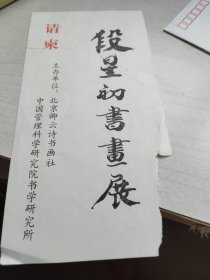 段星初書畫展
请柬
主办单位：北京卿云诗书画社
中国管理科学研究院书学研究所